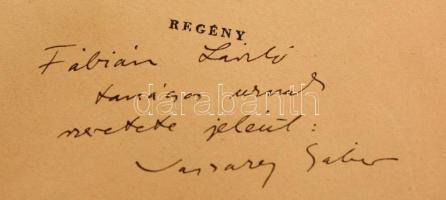 REGÉNY
Fábián László
tanácsos urnak
szeretete jeléül:
Vaszary Gábor
darabanth